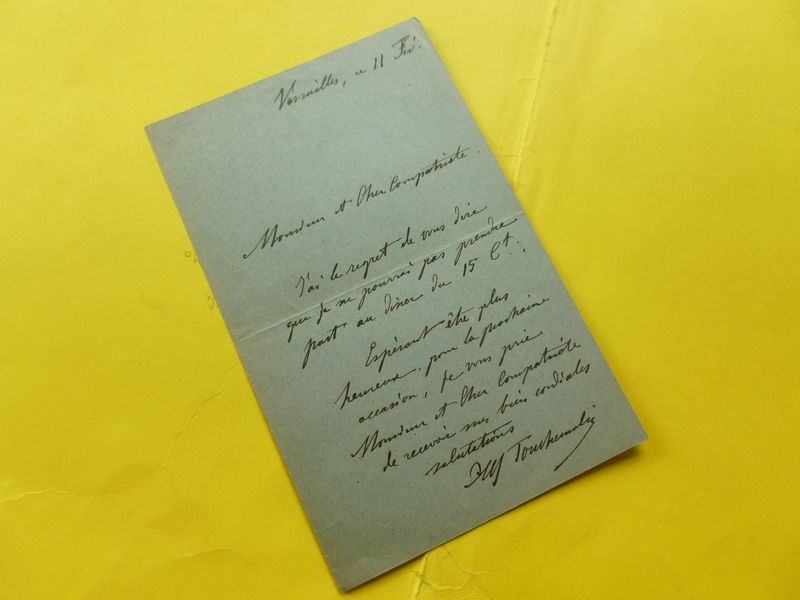 Versailles, ce 11 Fév.
Monsieur et Cher Compatriote.
J'ai le regret de vous dire
que je ne pourrai pas prendre
part au dîner du 15 Ct.
Espérant être plus
heureuse pour la prochaine
occasion, je vous prie
Monsieur et Cher Compatriote
de recevoir mes bien cordiales
salutations